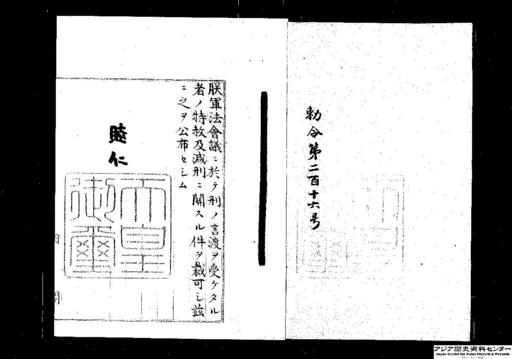 勅令第二百十六号
朕軍法會議ニ於テ刑ノ言渡ヲ受ケタル
者ノ特赦及減刑ニ關スル件ヲ裁可シ茲
ニ之ヲ公布セシム
睦仁
天皇
御璽
アジア歴史資料センター
Japan Center for Asian Historical Records